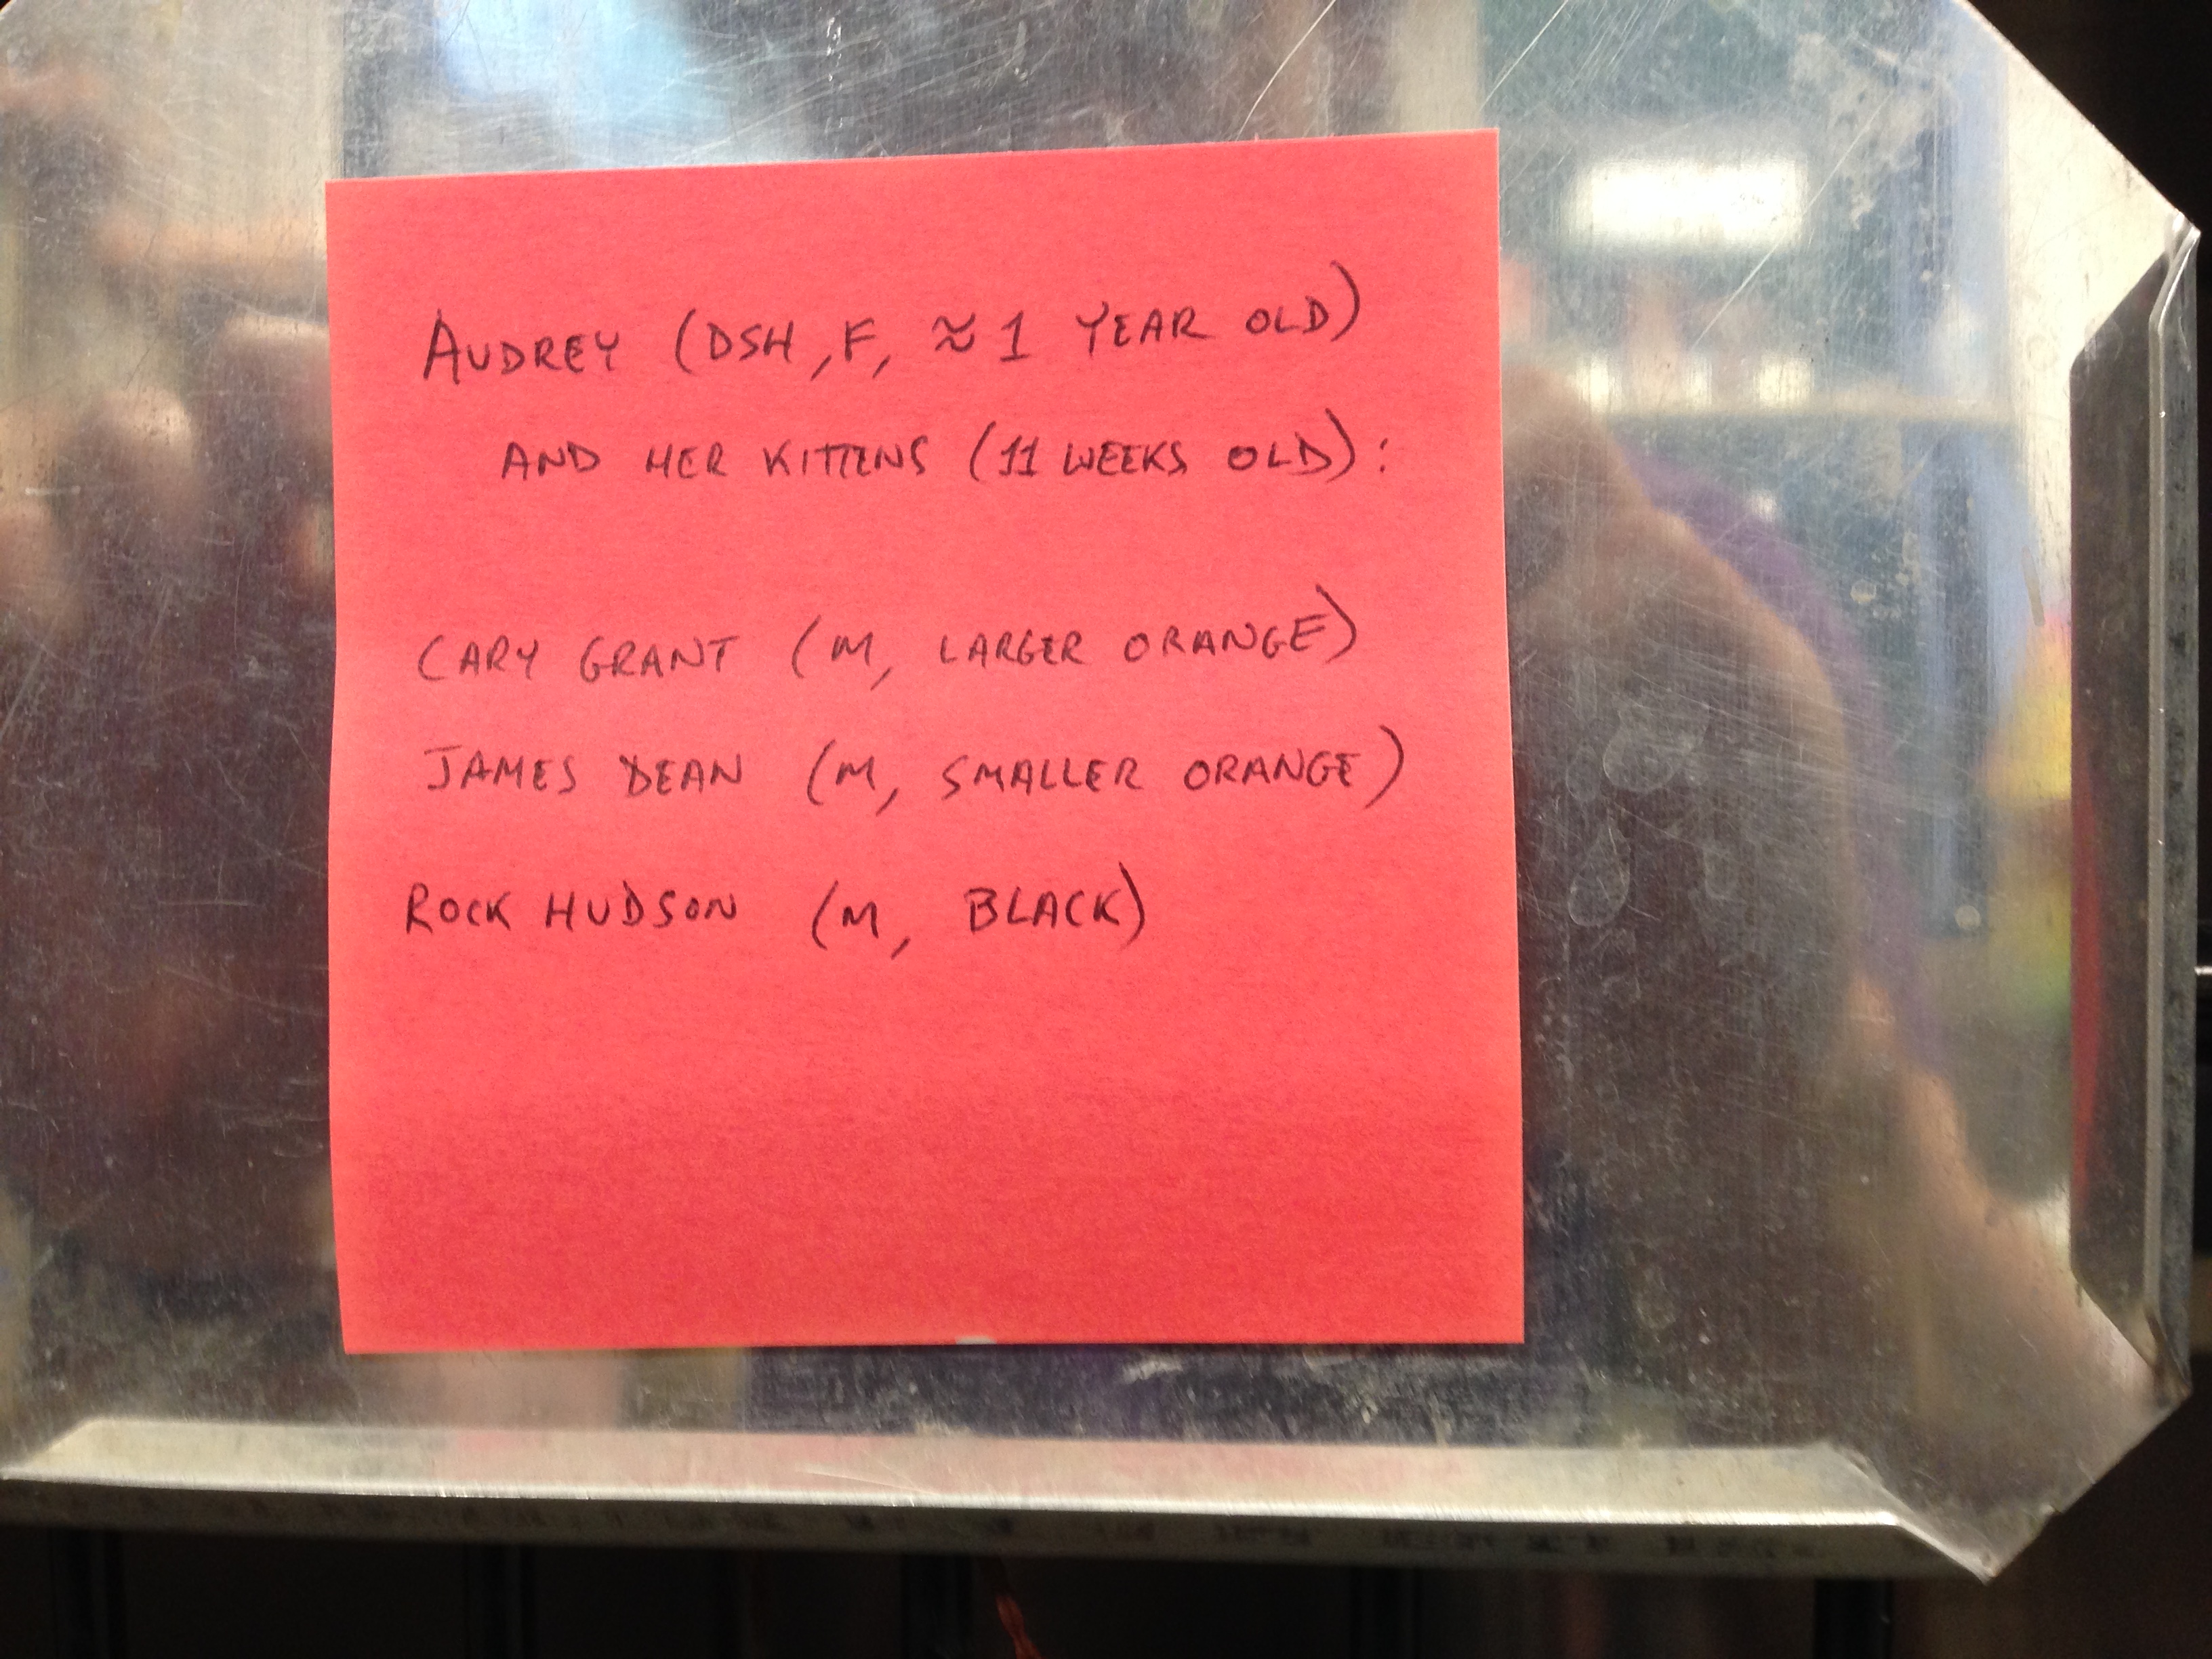 AUDREY (DSH, F, ≈ 1 YEAR OLD)
AND HER KITTENS (11 WEEKS OLD):
CARY GRANT (M, LARGER ORANGE)
JAMES DEAN (M, SMALLER ORANGE)
ROCK HUDSON (M, BLACK)